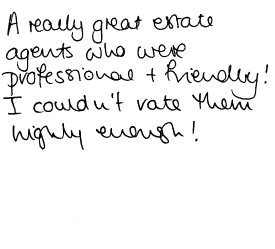 A really great estate
agents who were
professional + friendly!
I couldn't rate them
highly enough!